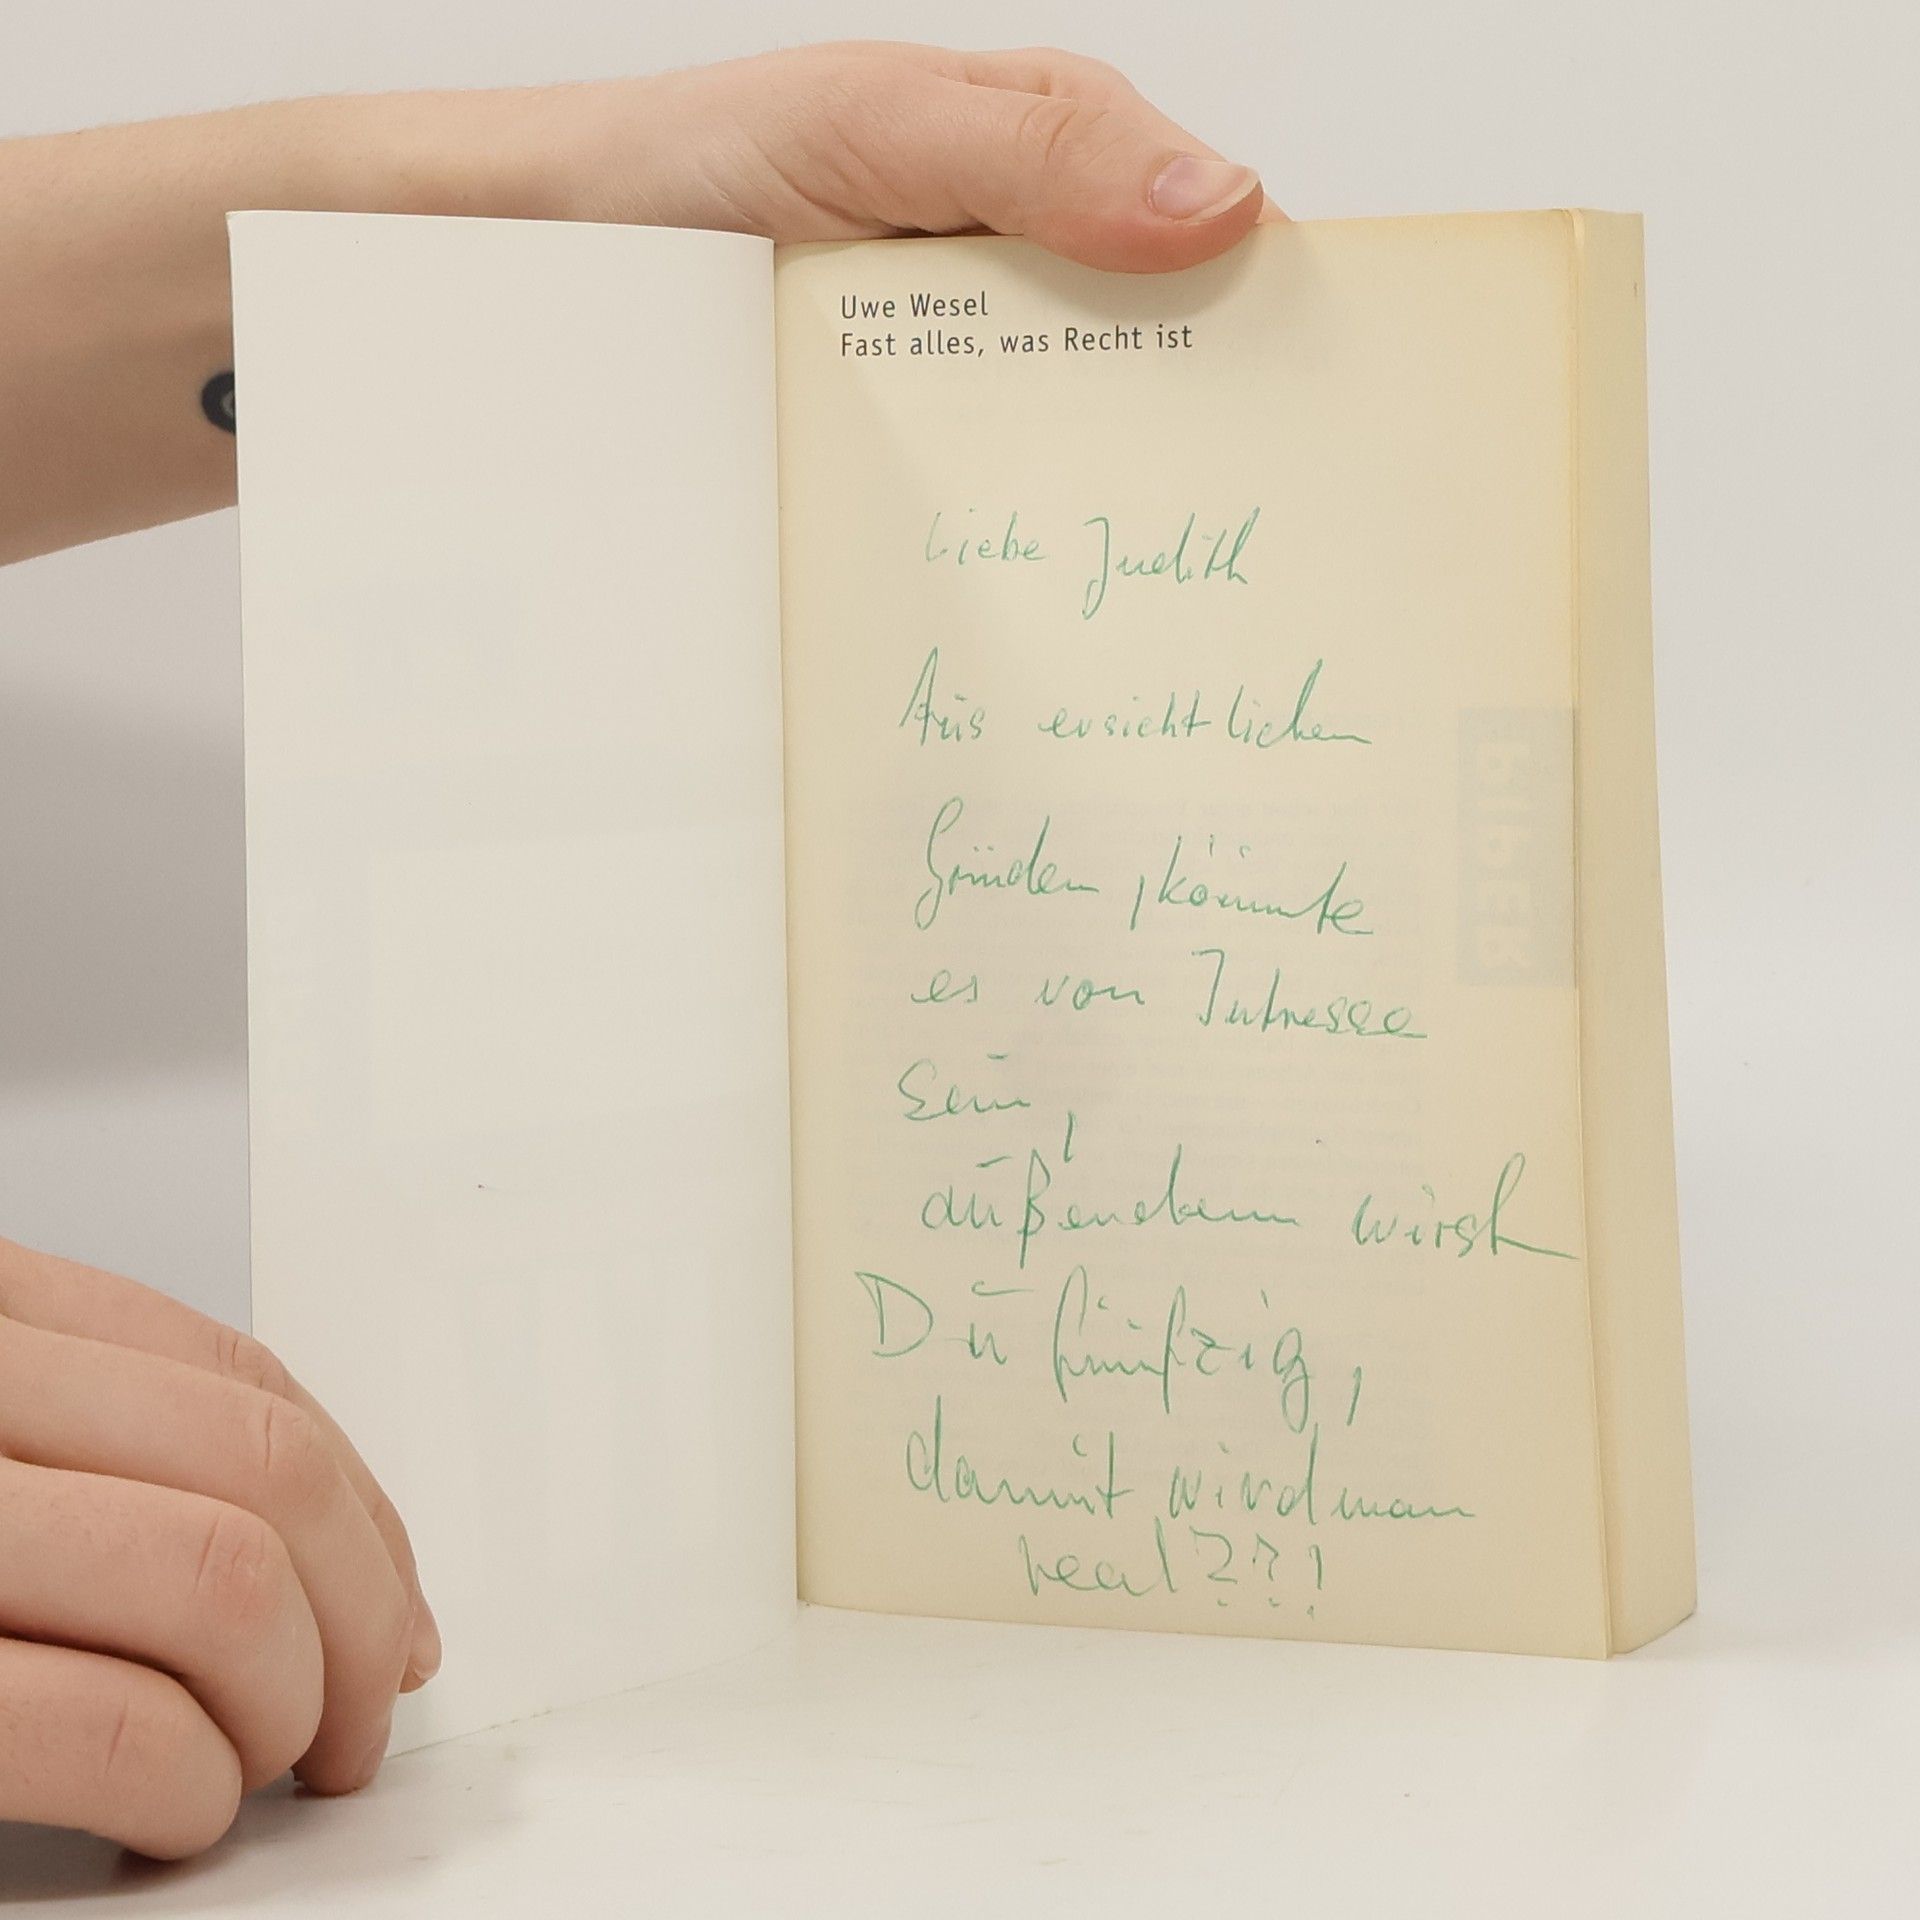 Uwe Wesel
Fast alles, was Recht ist
Liebe Judith
Aus ersichtlichen
Gründen, könnte
es von Intresse
sein,
außerdem wirst
Du fünfzig,
damit wird man
real???!
PIPER